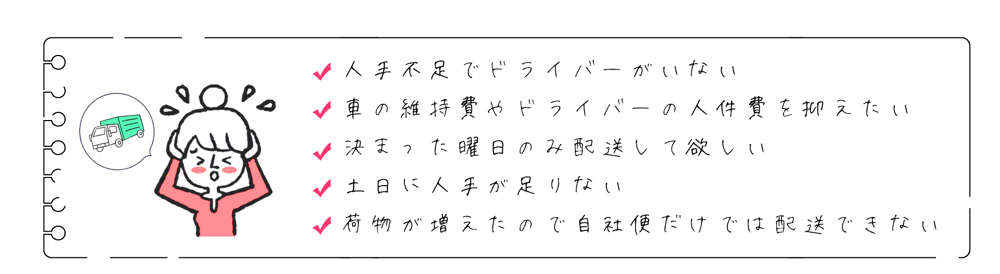 人手不足でドライバーがいない
車の維持費やドライバーの人件費を抑えたい
決まった曜日のみ配送して欲しい
土日に人手が足りない
荷物が増えたので自社便だけでは配送できない